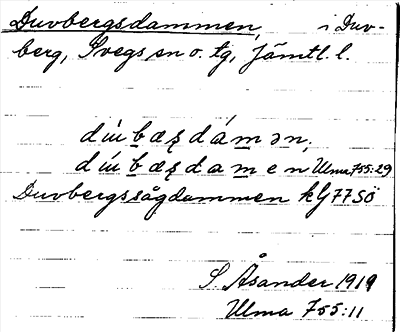 Duvbergsdammen, i Duv-
berg, Svegs sn o. tg, Jämtl. l.
dúbæʂdámən,
dúbæʂdamen Ulma 755:29
Duvbergssågdammen kG 77 SÖ
S. Åsander 1919
Ulma 755:11